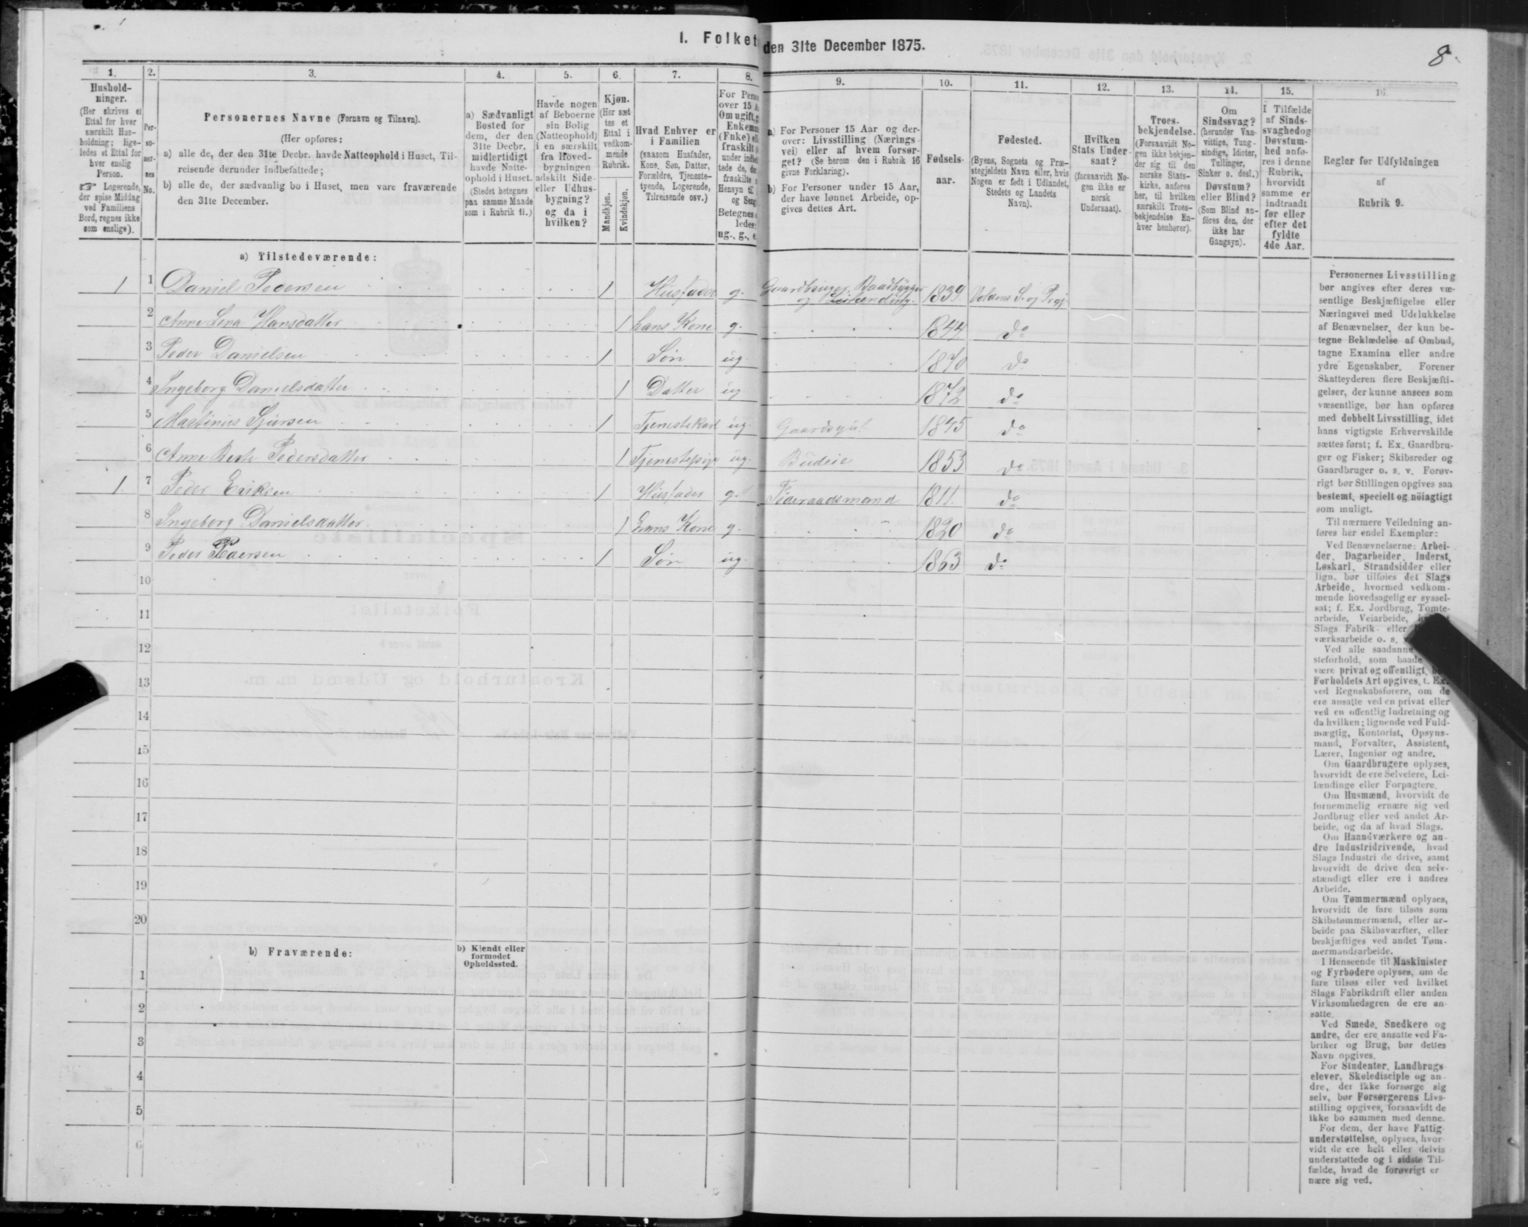 8.
I. Folket
den 31te December 1875.
1. 2. 3. 4. 5. 6. 7. 8. 9. 10. 11. 12. 13. 14. 15. 16.
Hushold-
ninger.
(Her skrives et
Ettal for hver
særskilt Hus-
holdning; lige-
ledes et Ettal for
hver enslig
Person.
Logerende,
der spise Middag
ved Familiens
Bord, regnes ikke
som enslige).
Per-
so-
ner-
nes
No.
Personernes Navne (Fornavn og Tilnavn).
(Her opføres:
a) alle de, der den 31te Decbr. havde Natteophold i Huset, Til-
reisende derunder indbefattede;
b) alle de, der sædvanlig bo i Huset, men vare fraværende
den 31te December.
a) Sædvanligt
Bosted for
dem, der den
31te Decbr.
midlertidigt
havde Natte-
ophold i Huset.
(Stedet betegnes
paa samme Maade
som i Rubrik 11.)
Havde nogen
af Beboerne
sin Bolig
(Natteophold)
i en særskilt
fra Hoved-
bygningen
adskilt Side-
eller Udhus-
bygning?
og da i
hvilken?
Kjøn.
(Her sæt-
tes et
Ettal i
vedkom-
mende
Rubrik.
Mandkjøn.
Kvindekjøn.
Hvad Enhver er
i Familien
(saasom Husfader,
Kone, Søn, Datter,
Forældre, Tjeneste-
tyende, Logerende,
Tilreisende osv.)
For Perso
over 15 A
Om ugift, g
Enkem
(Fnke) el
fraskilt
a) For Personer 15 Aar og der-
over: Livsstilling (Nærings-
vei) eller af hvem forsør-
get? (Se herom den i Rubrik 16
givne Forklaring).
b) For Personer under 15 Aar,
der have lønnet Arbeide, op-
gives dettes Art.
Fødsels-
aar.
Fødested.
(Byens, Sognets og Præ-
stegjeldets Navn eller, hvis
Nogen er født i Udlandet,
Stedets og Landets
Navn).
Hvilken
Stats Under-
saat?
(forsaavidt No-
gen ikke er
norsk
Undersaat).
Troes-
bekjendelse.
(Forsaavidt No-
gen ikke bekjen-
der sig til den
norske Stats-
kirke, anføres
her, til hvilken
særskilt Troes-
bekjendelse En-
hver henhører).
Om
Sindssvag?
(herunder Van-
vittige, Tung-
sindige, Idioter,
Tullinger,
Sinker o. desl.)
Døvstum?
eller Blind?
(Som Blind an-
føres den, der
ikke har
Gangsyn).
I Tilfælde
af Sinds-
svaghed og
Døvstum-
hed anfø-
res i denne
Rubrik,
hvorvidt
samme er
indtraadt
før eller
efter det
fyldte
4de Aar.
Regler for Udfyldningen
af
Rubrik 9.
a) Tilstedeværende:
1 1 Daniel Pedersen 1 Husfader g. Gaardbruger Baadbygger
og 1839
2 Anne Lena Hansdatter 1 hans Kone g. 1844 do
3 Peder Danielsen 1 Søn ug 1870 do
4 Ingeborg Danielsdatter 1 Datter ug 1872 do
5 1 ug Gaardsgut do
6 Anne Pedersdatter 1 ug. Budeie 1853 do
1 7 Peder Eriksen 1 Husfader g. Føderaadsmand 1811 do
8 Ingeborg Danielsdatter 1 hans Kone g. 1820 do
9 Peder Pedersen 1 Søn ug 1863 do
10
11
12
13
14
15
16
17
18
19
20
b) Fraværende:
b) Kjendt eller
formodet
Opholdssted.
1
2
3
4
5
6
Personernes Livsstilling
bør angives efter deres væ-
sentlige Beskjæftigelse eller
Næringsvei med Udelukkelse
af Benævnelser, der kun be-
tegne Beklædelse af Ombud,
tagne Examina eller andre
ydre Egenskaber. Forener
Skatteyderen flere Beskjæfti-
gelser, der kunne ansees som
væsentlige, bør han opføres
med dobbelt Livsstilling, idet
hans vigtigste Erhvervskilde
sættes først; f. Ex. Gaardbru-
ger og Fisker; Skibsreder og
Gaardbruger o. s. v. Forøv-
rigt bør Stillingen opgives saa
bestemt, specielt og nöiagtigt
som muligt.
Til nærmere Veiledning an-
føres her endel Exempler:
Ved Benævnelserne: Arbei-
der, Dagarbeider, Inderst,
Løskarl, Strandsidder eller
lign. bør tilføies det Slags
Arbeide, hvormed vedkom-
mende hovedsagelig er syssel-
sat; f. Ex. Jordbrug, Tomte-
arbeide, Veiarbeide,
Slags Fabrik- eller
værksarbeide o. s.
Ved alle saadanne
steforhold, som baade
være privat og offentligt,
Forholdets Art opgives, t. Ex.
ved Regnskabsførere, om de
ere ansatte ved en privat eller
ved en offentlig Indretning og
da hvilken; lignende ved Fuld-
mægtig, Kontorist, Opsyns-
mand, Forvalter, Assistent,
Lærer, Ingeniør og andre.
Om Gaardbrugere oplyses,
hvorvidt de ere Selveiere, Lei-
lændinge eller Forpagtere.
Om Husmænd, hvorvidt de
fornemmelig ernære sig ved
Jordbrug eller ved andet Ar-
beide, og da af hvad Slags.
Om Haandværkere og an-
dre Industridrivende, hvad
Slags Industri de drive, samt
hvorvidt de drive den selv-
stændigt eller ere i andres
Arbeide.
Om Tømmermænd oplyses,
hvorvidt de fare tilsøs som
Skibstømmermænd, eller ar-
beide paa Skibsværfter, eller
beskjæftiges ved andet Tøm-
mermandsarbeide.
I Henseende til Maskinister
og Fyrbødere oplyses, om de
fare tilsøs eller ved hvilket
Slags Fabrikdrift eller anden
Virksomhedsgren de ere an-
satte.
Ved Smede, Snedkere og
andre, der ere ansatte ved Fa-
briker og Brug, bør dettes
Navn opgives.
For Studenter, Landbrugs-
elever, Skoledisciple og an-
dre, der ikke forsørge sig
selv, bør Forsørgerens Livs-
stilling opgives, forsaavidt de
ikke bo sammen med denne.
For dem, der have Fattig-
understøttelse, oplyses, hvor-
vidt de ere helt eller delvis
understøttede og i sidste Til-
fælde, hvad de forøvrigt er
nære sig ved.